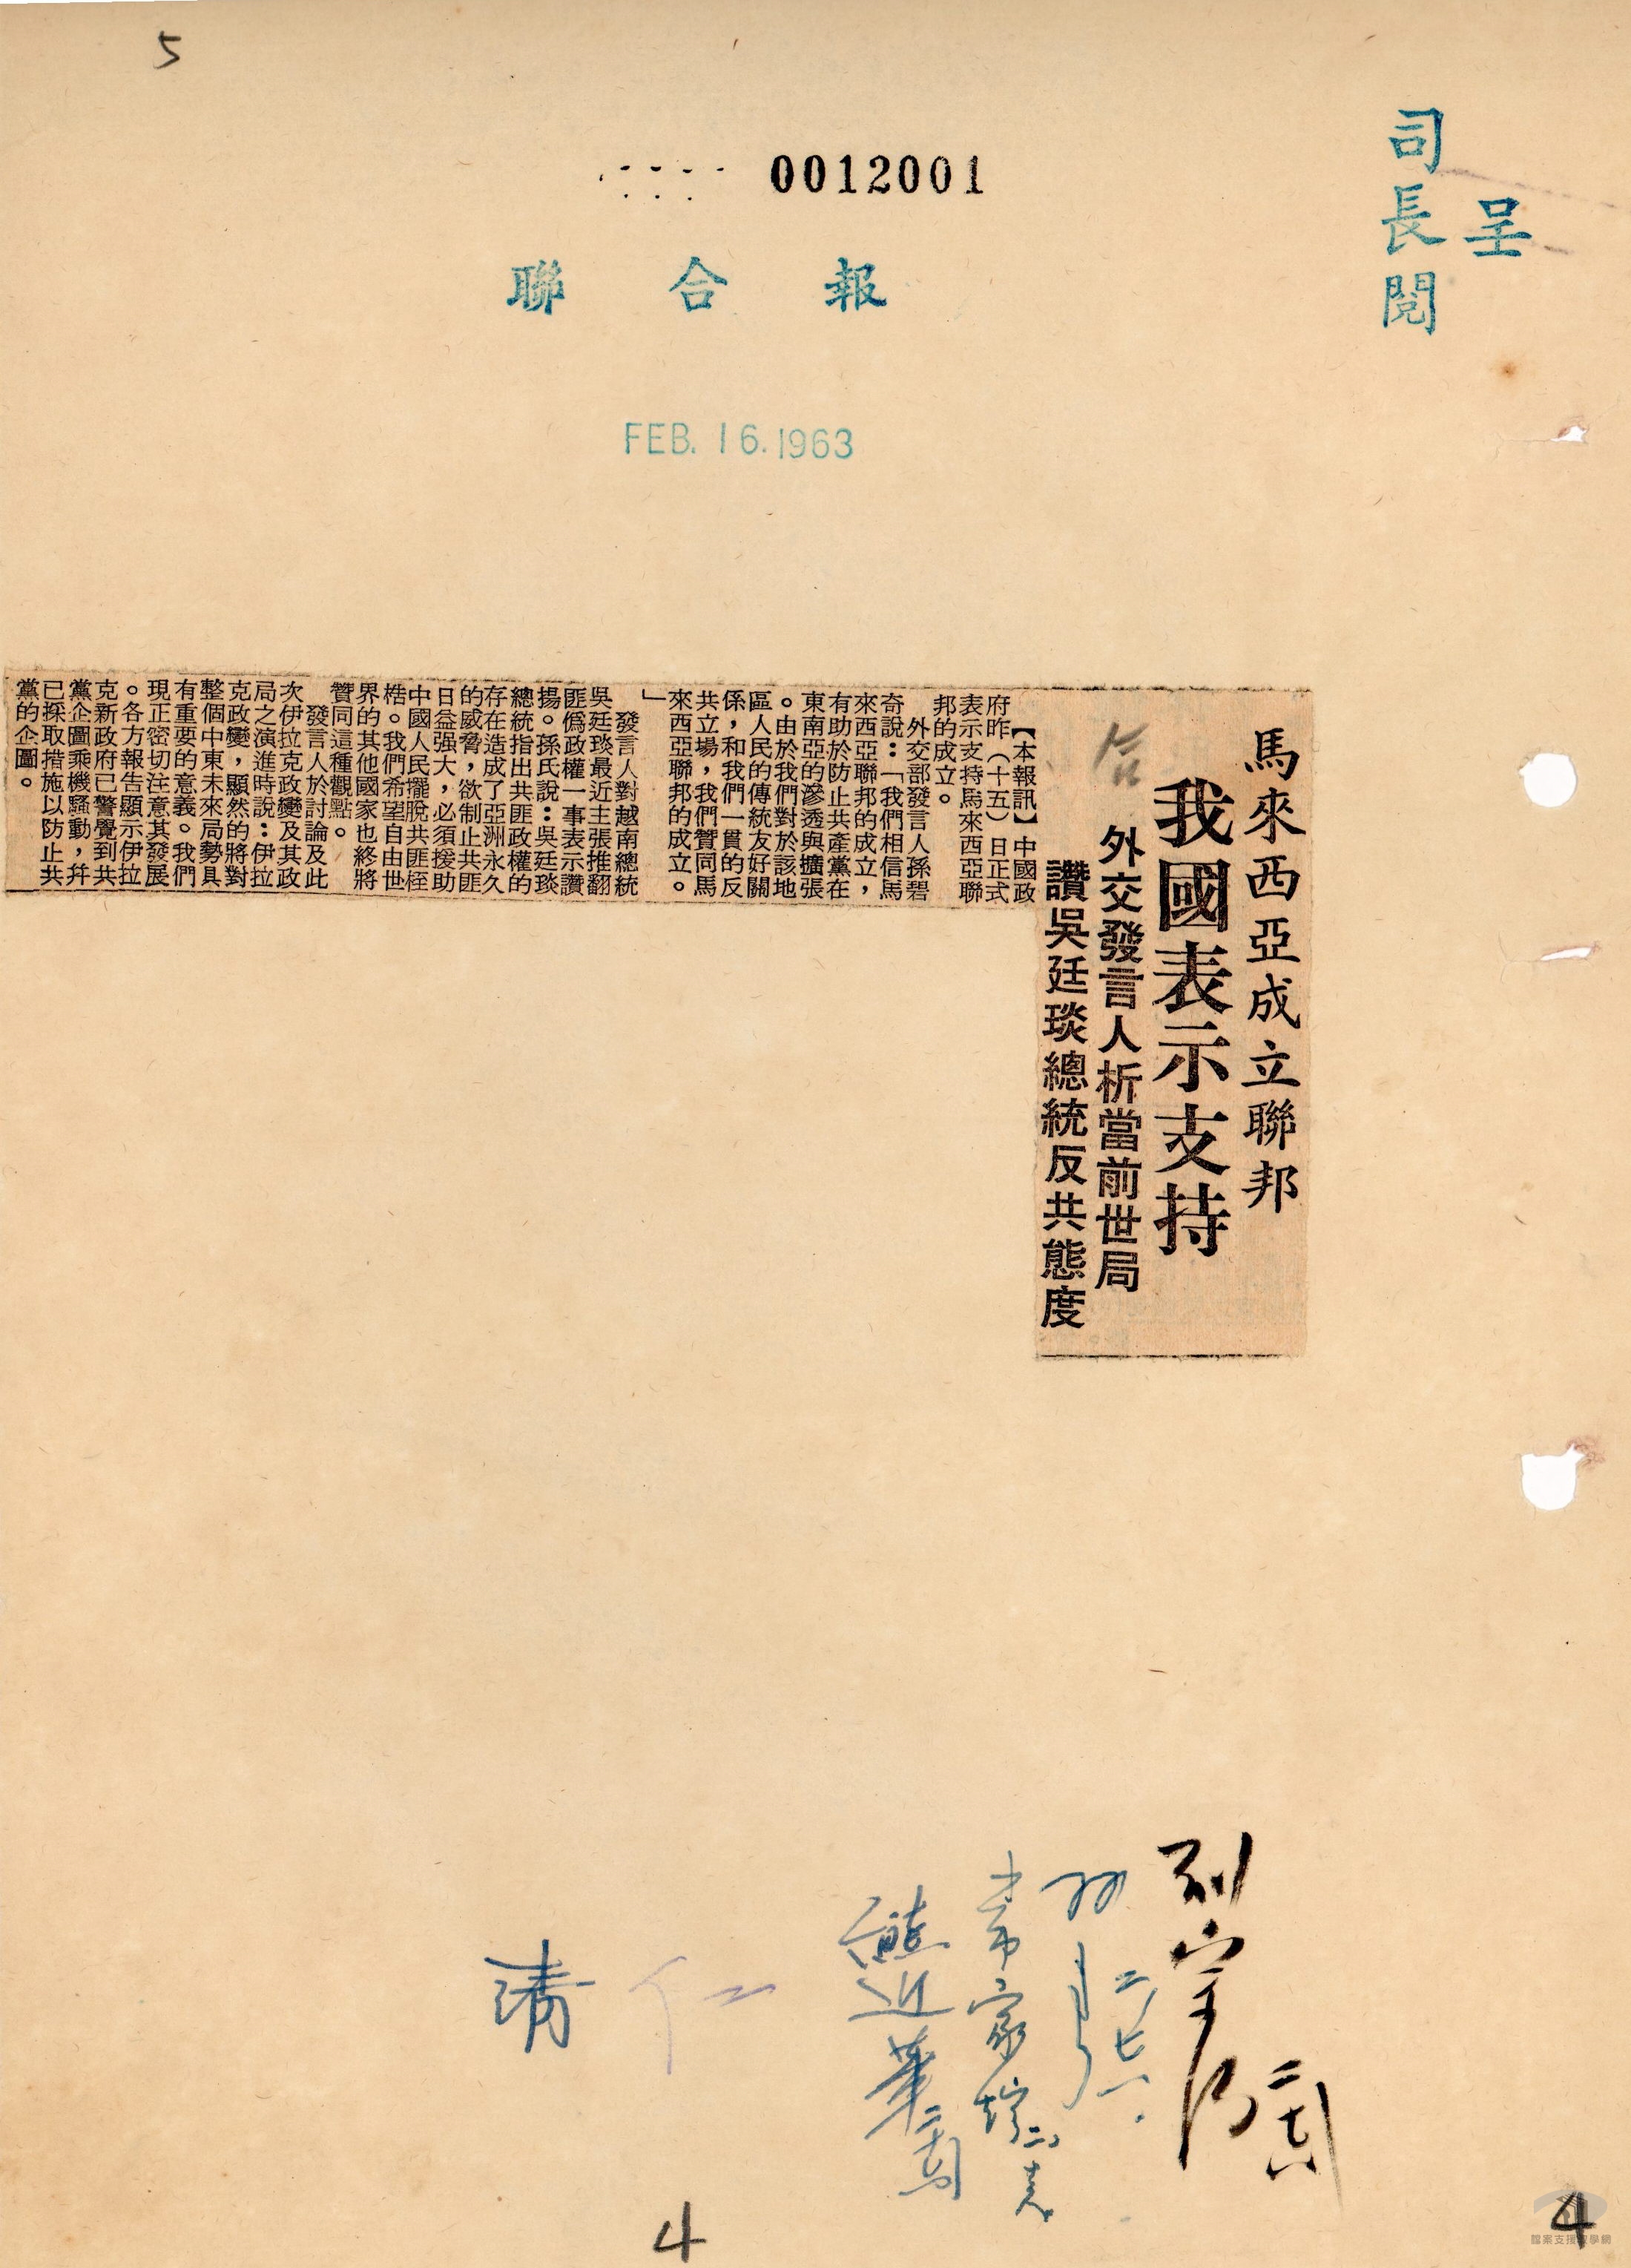 5
0012001
呈
司長閱
聯合報
FEB. 16. 1963
馬來西亞成立聯邦
我國表示支持
外交發言人析當前世局
讚吳廷琰總統反共態度
【本報訊】中國政
府昨（十五）日正式
表示支持馬來西亞聯
邦的成立。
外交部發言人孫碧
奇說：「我們相信馬
來西亞聯邦的成立，
有助於防止共產黨在
東南亞的滲透與擴張
。由於我們對於該地
區人民的傳統友好關
係，和我們一貫的反
共立場，我們贊同馬
來西亞聯邦的成立。
」
發言人對越南總統
吳廷琰最近主張推翻
匪僞政權一事表示讚
揚。孫氏說：吳廷琰
總統指出共匪政權的
存在造成了亞洲永久
的威脅，欲制止共匪
日益强大，必須援助
中國人民擺脫共匪桎
梏。我們希望自由世
界的其他國家也終將
贊同這種觀點。
發言人於討論及此
次伊拉克政變及其政
局之演進時說：伊拉
克政變，顯然的將對
整個中東未來局勢具
有重要的意義。我們
現正密切注意其發展
。各方報告顯示伊拉
克新政府已警覺到共
黨企圖乘機騷動，幷
已採取措施以防止共
黨的企圖。
熊近華
清
4
4
檔案支援教學網